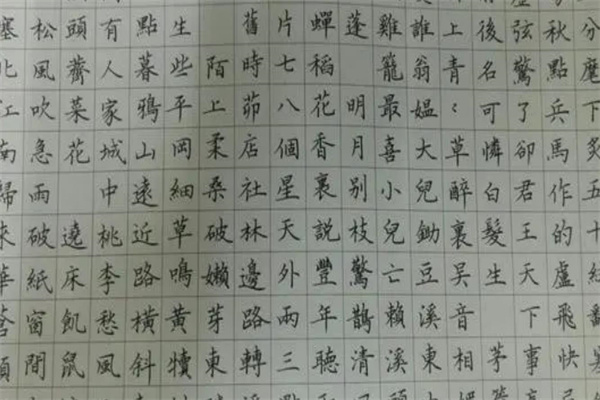 分麾下炙五十絃翻
秋點兵馬作的盧飛快
弦驚了卻君王天下事
後名可憐白髮生 茅
上青〻草醉裏吳音相
誰翁媼大兒鋤豆溪東
雞籠最喜小兒亡賴溪
蓬 明月別枝驚鵲清
蟬稻花香裏說豐年聽
片七八個星天外兩三
舊時茆店社林邊路轉
陌上柔桑破嫩芽東
生些平岡細草鳴黃犢
點暮鴉山遠近路橫斜
有人家城中桃李愁風
頭薺菜花 遶床飢鼠
松風吹急雨破紙窗間
塞北江南歸來華蒼顏